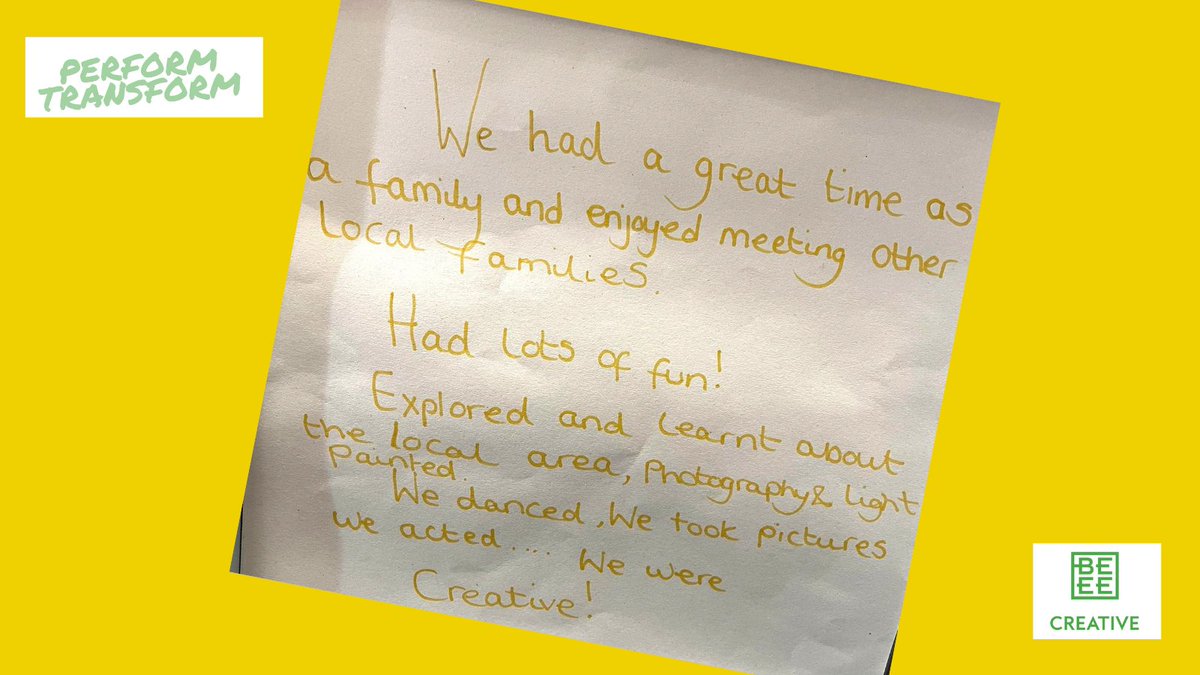 PERFORM
TRANSFORM
We had a great time as
a family and enjoyed meeting other
local families.
Had lots of fun!
Explored and learnt about
the local area, Photography & Light
painted.
We danced, We took pictures
we acted.... We were
Creative!
BE
EE
CREATIVE